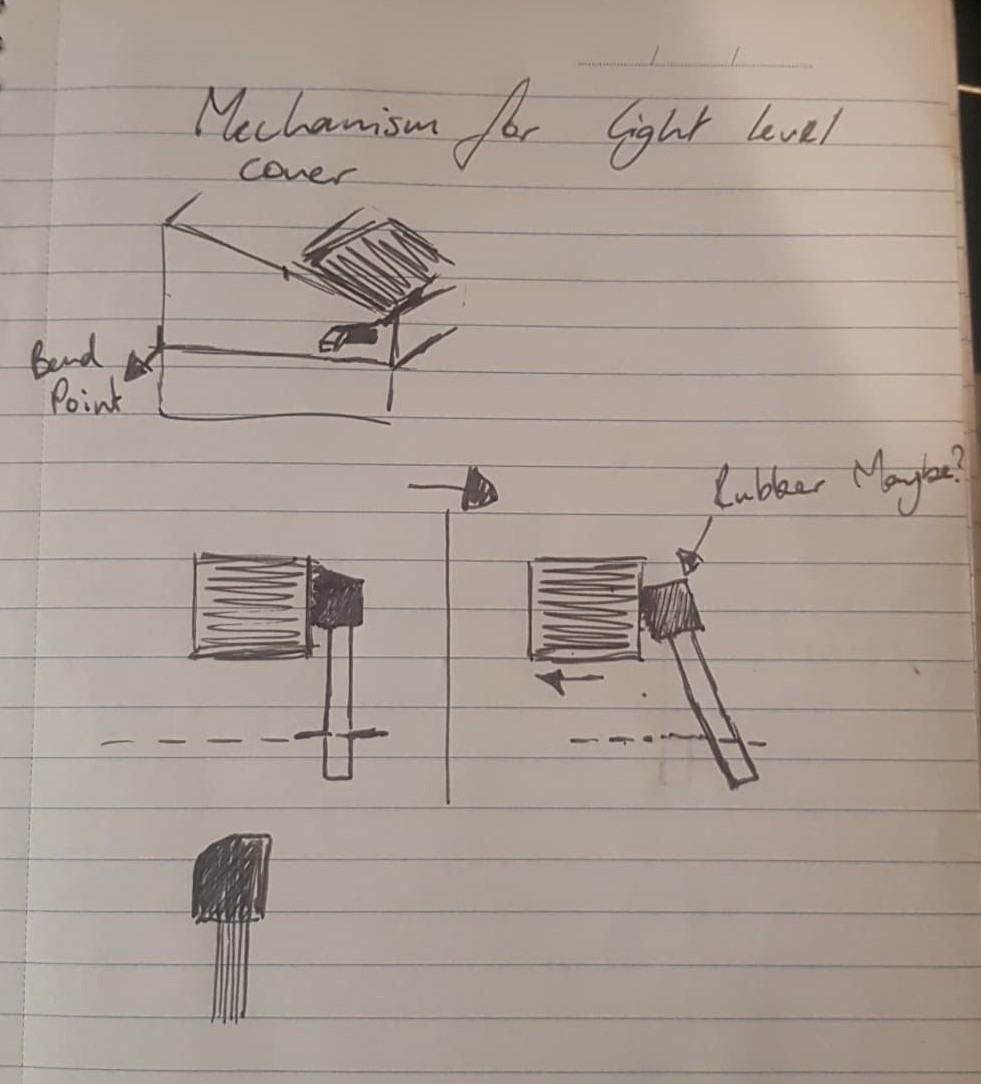 Mechanism for light level
cover
Bend
Point
Rubber Maybe?